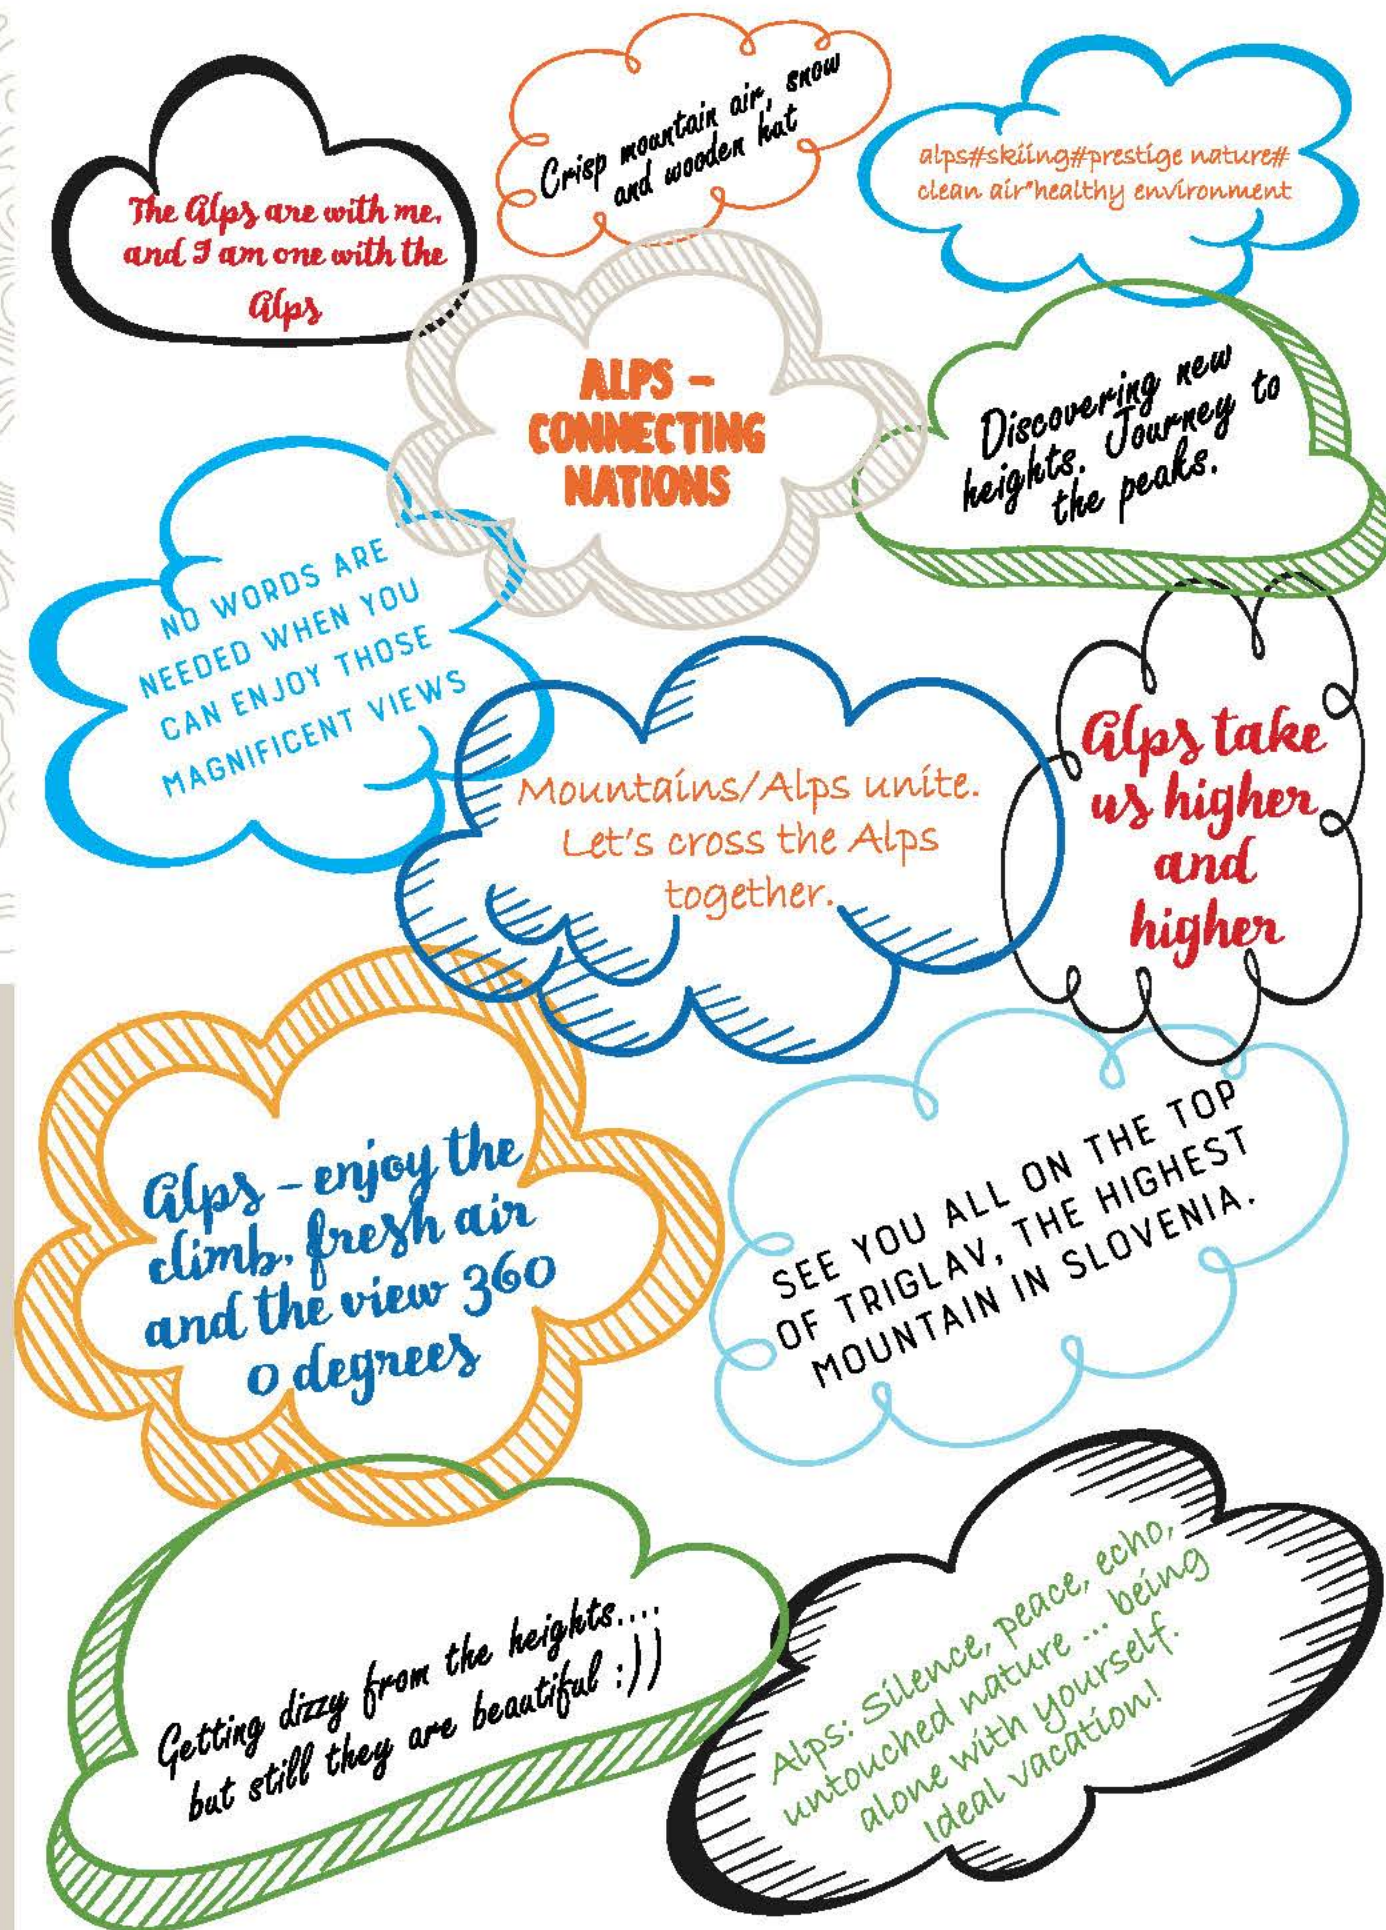 The Alps are with me,
and I am one with the
Alps
Crisp mountain air, snow
and wooden hut
alps#skiing#prestige nature#
clean air"healthy environment
ALPS –
CONNECTING
NATIONS
Discovering new
heights. Journey to
the peaks.
NO WORDS ARE
NEEDED WHEN YOU
CAN ENJOY THOSE
MAGNIFICENT VIEWS
Mountains/Alps unite.
Let's cross the Alps
together.
Alps take
us higher
and
higher
Alps – enjoy the
climb, fresh air
and the view 360
0 degrees
SEE YOU ALL ON THE TOP
OF TRIGLAV, THE HIGHEST
MOUNTAIN IN SLOVENIA.
Getting dizzy from the heights....
but still they are beautiful :))
Alps: Silence, peace, echo,
untouched nature ... being
alone with yourself.
Ideal vacation!